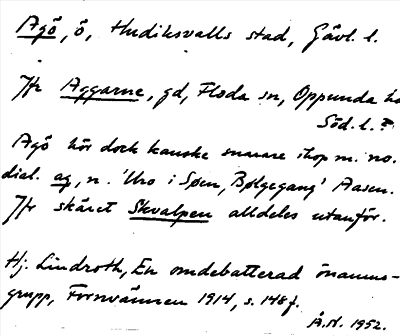 Agö, ö, Hudiksvalls stad, Gävl. l.
Jfr Aggarne, gd, Floda sn, Oppunda h
Söd. l.?
Agö hör dock kanske snarare ihop m. no.
dial. ag, n. 'Uro i Søen, Bølgegang' Aasen.
Jfr skäret Skvalpen alldeles utanför.
Hj. Lindroth, En omdebatterad önamns-
grupp, Fornvännen 1914, s. 148 f.
Å.N. 1952.